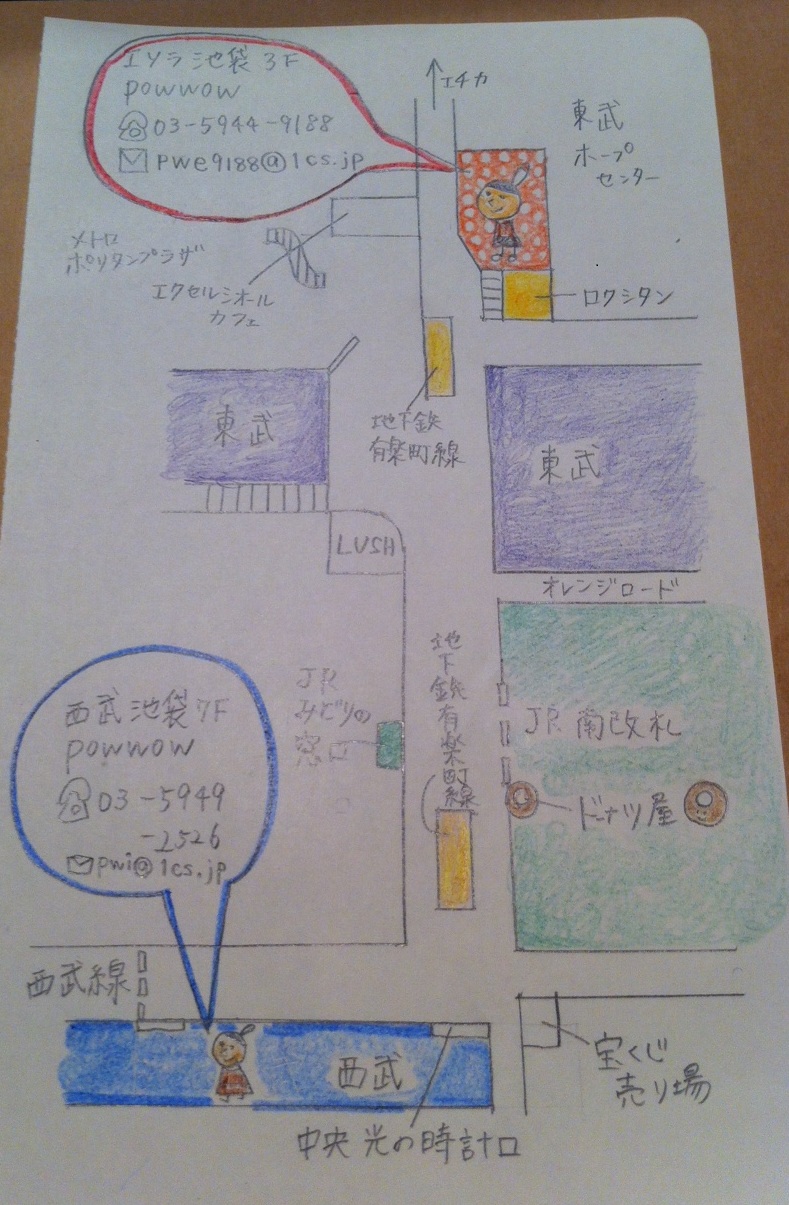 エソラ池袋 3F
powwow
03-5944-9188
pwe9188@1cs.jp
エチカ
東武
ホープ
センター
メトロ
ポリタンプラザ
エクセルシオール
カフェ
ロクシタン
地下鉄
有楽町線
東武
東武
LUSH
オレンジロード
地下鉄有楽町線
JR
みどりの
窓口
JR 南改札
ドーナツ屋
西武池袋7F
powwow
03-5949
-2526
pwi@1cs.jp
西武線
西武
宝くじ
売り場
中央 光の時計口